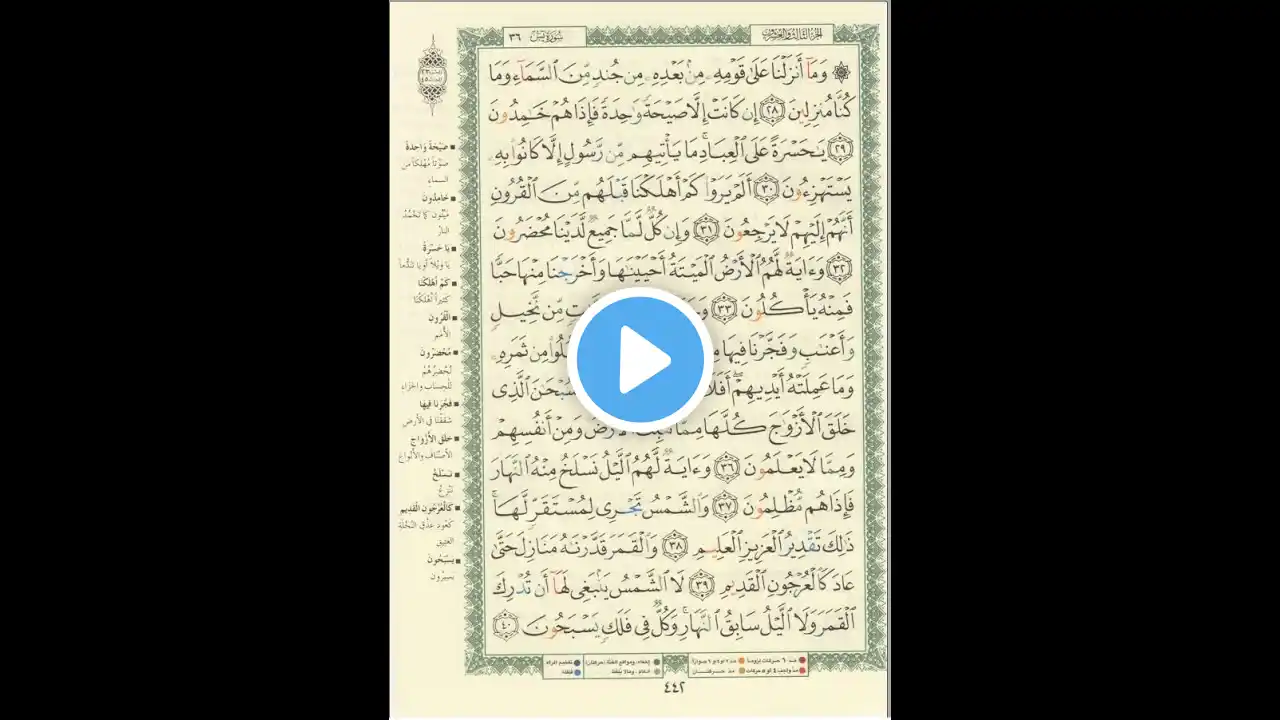 الجزء الثالث والعشرون
سورة يس ٣٦
۞ وَمَآ أَنزَلْنَا عَلَىٰ قَوْمِهِۦ مِنۢ بَعْدِهِۦ مِن جُندٍ مِّنَ ٱلسَّمَآءِ وَمَا
كُنَّا مُنزِلِينَ ٢٨ إِن كَانَتْ إِلَّا صَيْحَةً وَٰحِدَةً فَإِذَا هُمْ خَٰمِدُونَ
٢٩ يَٰحَسْرَةً عَلَى ٱلْعِبَادِ ۚ مَا يَأْتِيهِم مِّن رَّسُولٍ إِلَّا كَانُوا۟ بِهِۦ
يَسْتَهْزِءُونَ ٣٠ أَلَمْ يَرَوْا۟ كَمْ أَهْلَكْنَا قَبْلَهُم مِّنَ ٱلْقُرُونِ
أَنَّهُمْ إِلَيْهِمْ لَا يَرْجِعُونَ ٣١ وَإِن كُلٌّ لَّمَّا جَمِيعٌ لَّدَيْنَا مُحْضَرُونَ
٣٢ وَءَايَةٌ لَّهُمُ ٱلْأَرْضُ ٱلْمَيْتَةُ أَحْيَيْنَٰهَا وَأَخْرَجْنَا مِنْهَا حَبًّا
فَمِنْهُ يَأْكُلُونَ ٣٣ مِّن نَّخِيلٍ
وَأَعْنَٰبٍ وَفَجَّرْنَا فِيهَا مِن ثَمَرِهِۦ
وَمَا عَمِلَتْهُ أَيْدِيهِمْ ۖ ٱلَّذِى
خَلَقَ ٱلْأَزْوَٰجَ كُلَّهَا مِمَّا تُنۢبِتُ ٱلْأَرْضُ وَمِنْ أَنفُسِهِمْ
وَمِمَّا لَا يَعْلَمُونَ ٣٦ وَءَايَةٌ لَّهُمُ ٱلَّيْلُ نَسْلَخُ مِنْهُ ٱلنَّهَارَ
فَإِذَا هُم مُّظْلِمُونَ ٣٧ وَٱلشَّمْسُ تَجْرِى لِمُسْتَقَرٍّ لَّهَا ۚ
ذَٰلِكَ تَقْدِيرُ ٱلْعَزِيزِ ٱلْعَلِيمِ ٣٨ وَٱلْقَمَرَ قَدَّرْنَٰهُ مَنَازِلَ حَتَّىٰ
عَادَ كَٱلْعُرْجُونِ ٱلْقَدِيمِ ٣٩ لَا ٱلشَّمْسُ يَنۢبَغِى لَهَآ أَن تُدْرِكَ
ٱلْقَمَرَ وَلَا ٱلَّيْلُ سَابِقُ ٱلنَّهَارِ ۚ وَكُلٌّ فِى فَلَكٍ يَسْبَحُونَ ٤٠
صَيْحَةً وَاحِدَةً
صوتاً مُهلكاً من
السماء
خَامِدُونَ
مَيِّتُون كما تَخْمُدُ
النار
يَا حَسْرَةً
يا ويلاً أو يا تندُّماً
كَمْ أَهْلَكْنَا
كثيراً أهلكنا
الْقُرُونِ
الأمم
مُحْضَرُونَ
نُحضِرُهُمْ
للحساب والجزاء
فَجَّرْنَا فِيهَا
شققنا في الأرض
خَلَقَ الأَزْوَاجَ
الأصناف والأنواع
نَسْلَخُ
نَنْزِعُ
كَالْعُرْجُونِ الْقَدِيمِ
كعود عِذْقِ النخلة
العتيق
يَسْبَحُونَ
يسيرون
مدّ ٦ حركات لزوماً
مدّ ٢ أو ٤ أو ٦ جوازاً
إخفاء، ومواقع الغُنَّة (حركتان)
تفخيم الراء
مدّ واجب ٤ أو ٥ حركات
مدّ حركتان
إدغام، وما لا يُلفَظ
قلقلة
٤٤٢